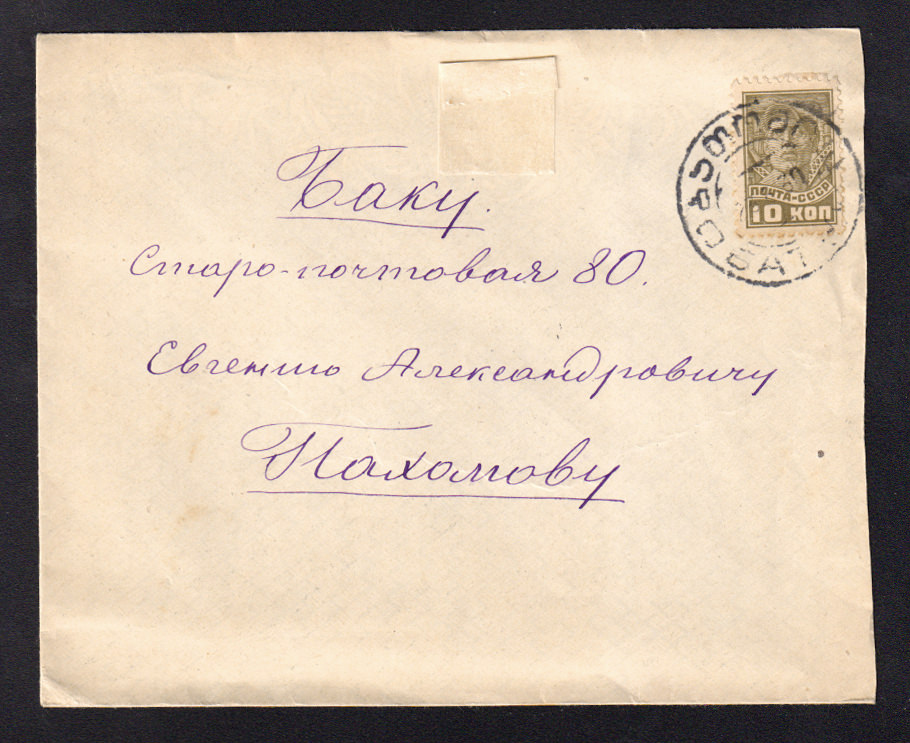 Баку.
Старо-почтовая 80.
Евгению Александровичу
Пахомову
ПОЧТА-СССР
10 КОП